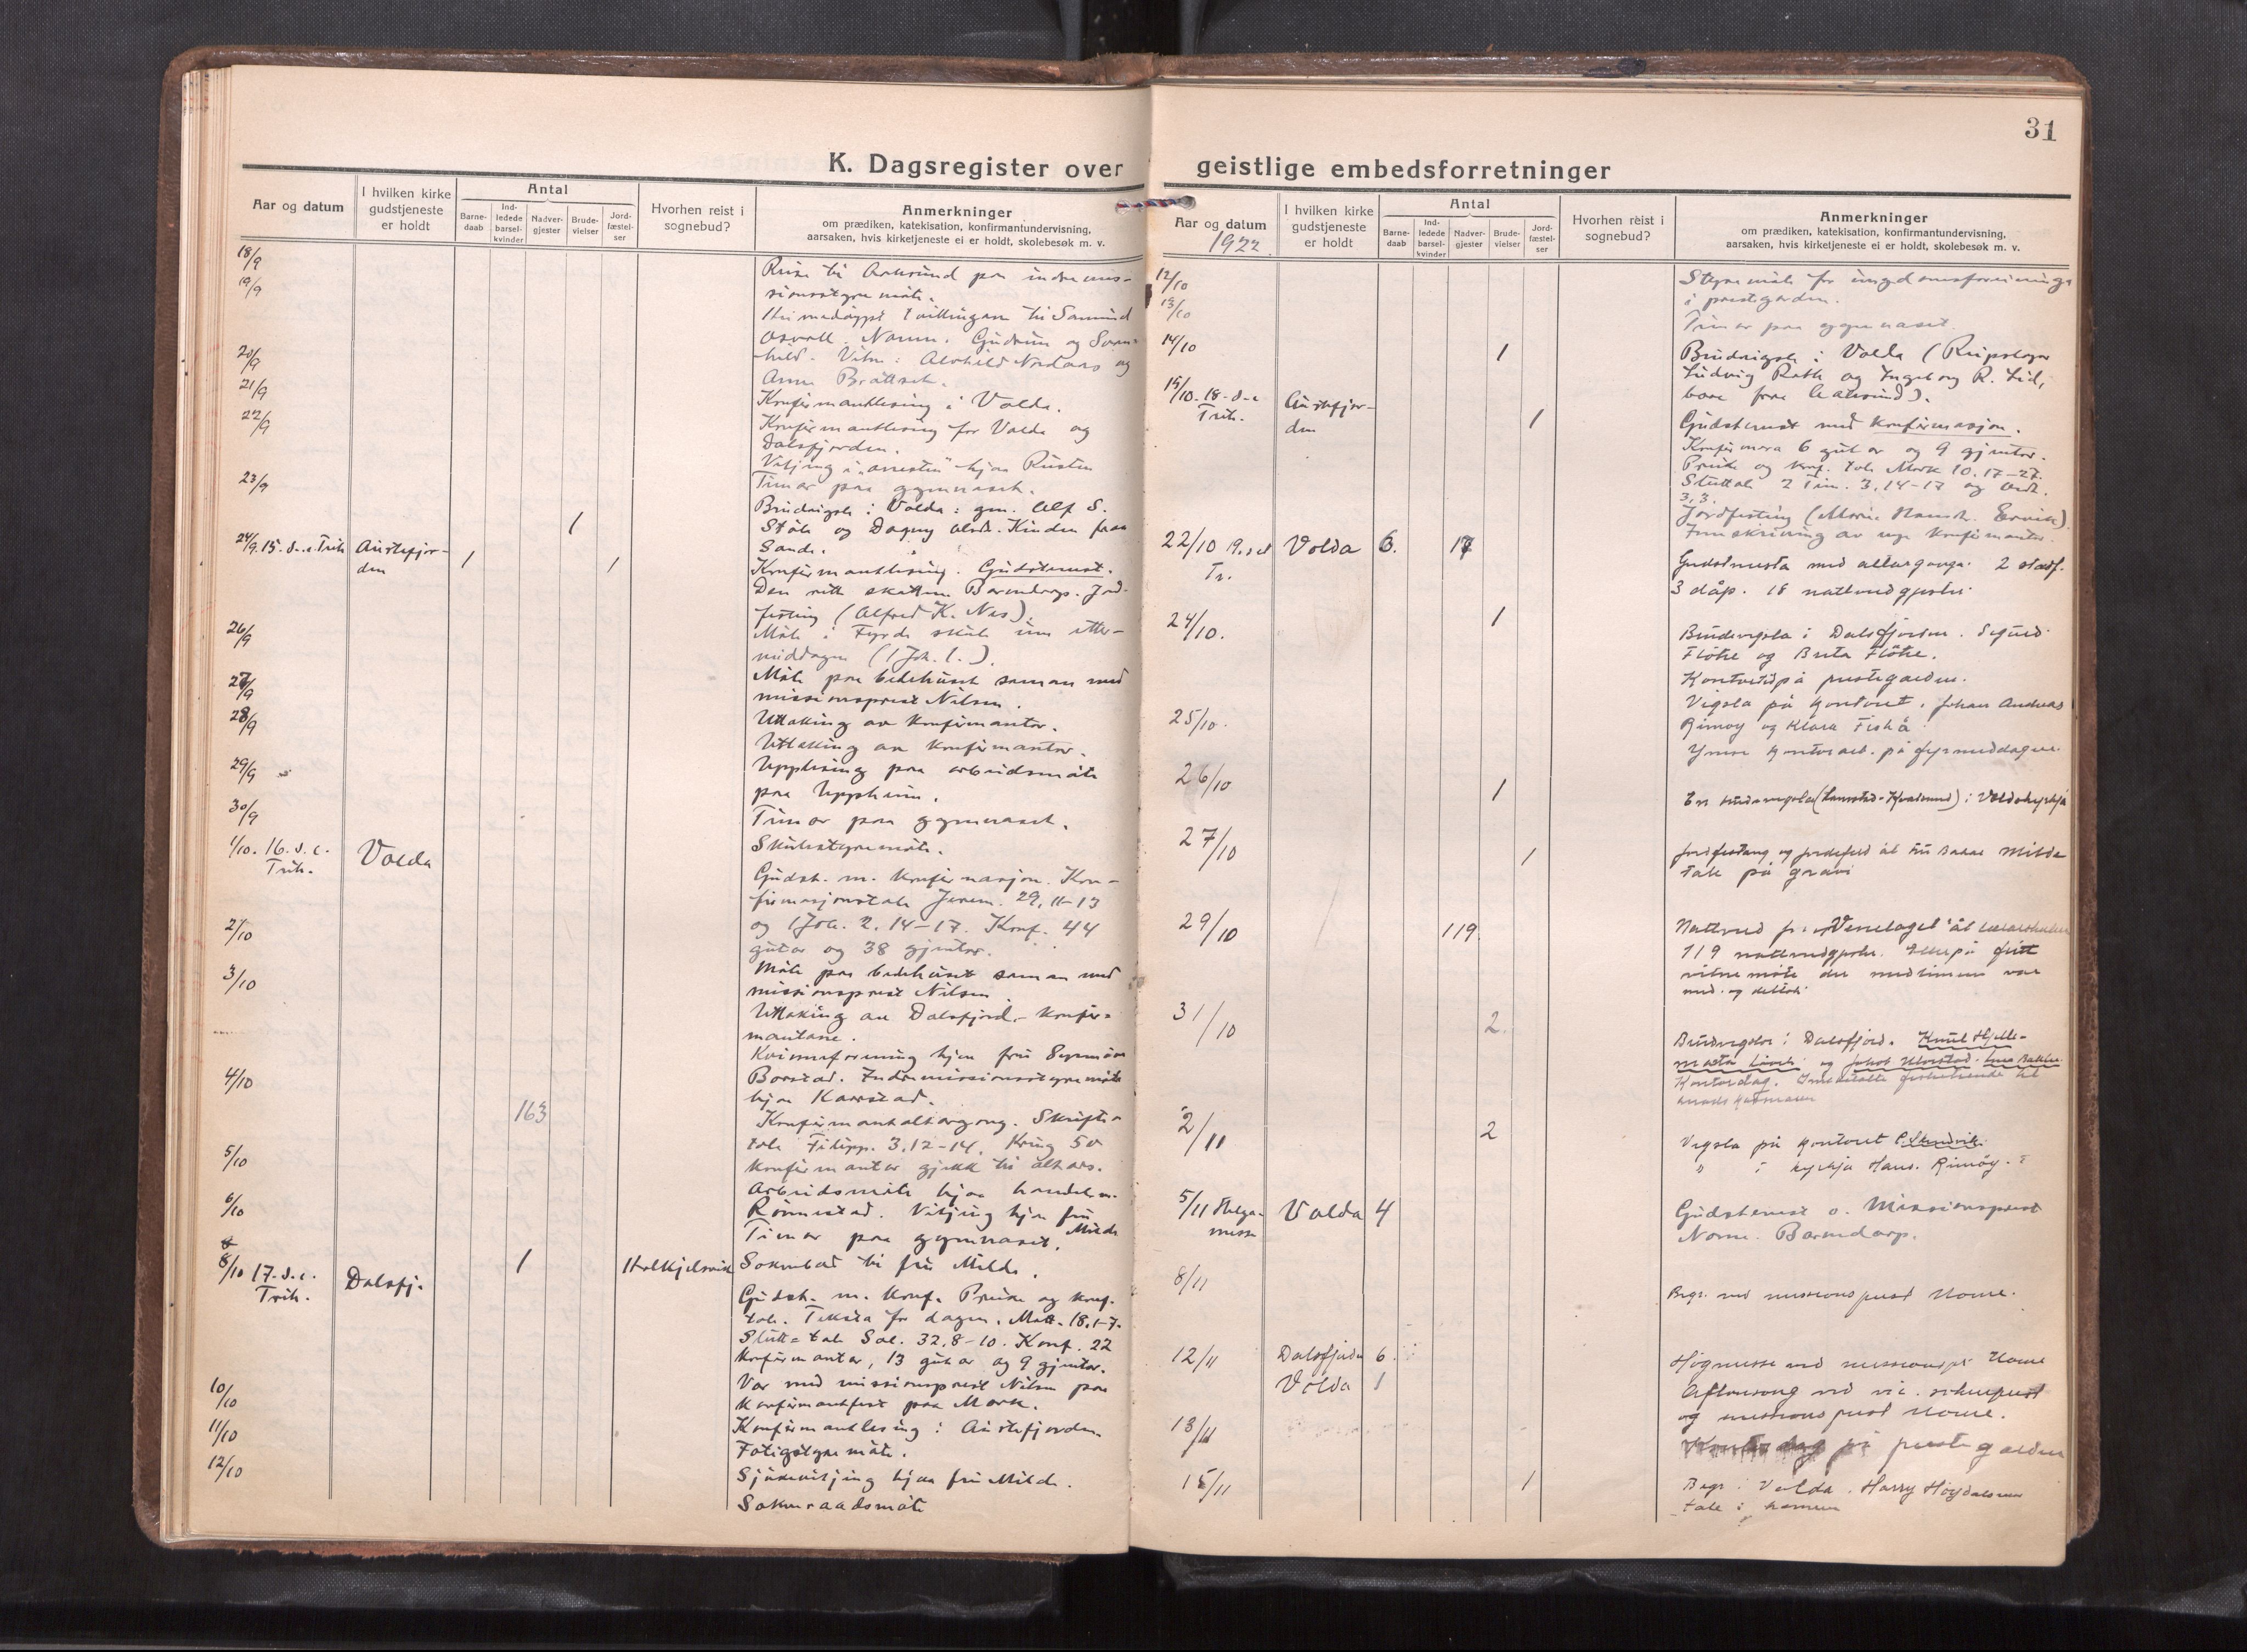 31
K. Dagsregister over geistlige embedsforretninger
Aar og datum
I hvilken kirke gudstjeneste er holdt
Antal
Barne-daab
Ind-ledede barsel-kvinder
Nadver-gjester
Brude-vielser
Jord-fæstel-ser
Hvorhen reist i sognebud?
Anmerkninger
om prædiken, katekisation, konfirmantundervisning,
aarsaken, hvis kirketjeneste ei er holdt, skolebesøk m. v.
18/9
til paa indremis-
19/9
sionsstyremöte.
tvillingan til
Namn: Gudrun og Svan-
20/9
hild. Vitne: Alvhild og
Anna
21/9
Konfirmantlesing i Volda.
22/9
Konfirmantlesing for Volda og
Dalsfjorden.
Vitjing i "arresten" hjaa
23/9
Timar paa gymnaset.
1
Brudvigsle i Volda: gm. Alf S.
og Dagny Kinden fraa
Sande.
24/9. 15. s. e. Trih
Austefjor-
den
1
1
Konfirmantlesing. Gudstenest.
Den Barnedaap. Jord-
festing (Alfred K. Nes).
26/9
Möte i Fyrde skule um etter-
middagen (1 Joh. 1.).
27/9
Möte paa bedehuset saman med
missionsprest Nilsen.
28/9
Uttaking av konfirmantar.
Uttaking av konfirmantar.
29/9
Upplesing paa arbeidsmöte
paa Uppheim.
30/9
Timar paa gymnaset.
1/10. 16. s. e.
Trih.
Volda
Skulestyremöte.
Gudst. m. konfirmasjon. Kon-
firmasjonstale Jerem. 29, 11-13
2/10
og 1 Joh. 2, 14-17. Konf. 44
gutar og 38 gjentor.
3/10
Möte paa bedehuset saman med
missionsprest Nilsen.
Uttaking av Dalsfjord-konfir-
mantane.
Kvinneforening hjaa fru
4/10
Indremissionsstyremöte
hjaa
163
Konfirmantaltargong. Skrifte-
tale Filipp. 3, 12-14. Kring 50
5/10
konfirmantar gjekk til altars.
Arbeidsmöte hjaa
6/10
Vitjing hjaa fru
Milde
Timar paa gymnaset.
8/10 17. s. e.
Trih.
Dalsfj.
1
Soknebud til fru Milde.
Gudst. m. konf. Preike og konf.
tale. Teksta for dagen, Matt. 18, 1-7.
Slutt-tale Sal. 32, 8-10. Konf. 22
konfirmantar, 13 gutar og 9 gjentor.
10/10
Var med missionsprest Nilsen paa
konfirmantfest paa Mork.
11/10
Konfirmantlesing i Austefjorden.
Fatigstyremöte.
12/10
Sjukevitjing hjaa fru Milde.
Soknaraadsmöte
Aar og datum
1922
I hvilken kirke gudstjeneste er holdt
Antal
Barne-daab
Ind-ledede barsel-kvinder
Nadver-gjester
Brude-vielser
Jord-fæstel-ser
Hvorhen reist i sognebud?
Anmerkninger
om prædiken, katekisation, konfirmantundervisning,
aarsaken, hvis kirketjeneste ei er holdt, skolebesøk m. v.
12/10
Styremöte for
i prestegarden.
13/10
Timar paa gymnaset.
14/10
1
Brudvigsle i Volda
Ludvig og Ingeborg R. Lid,
15/10. 18. s. e.
Trih.
Austefjor-
den
1
Gudstenest med konfirmasjon.
Konfirmera 6 gutar og 9 gjentor.
Preike og konf. tale Mark 10, 17-27.
Sluttale 2 Tim. 3, 14-17 og
3, 3.
Jordfesting
Innskriving av nye konfirmantar.
22/10 19. s. e.
Tr.
Volda
6.
17
Gudstenesta med altargonge. 2 stadf.
3 dåp. 18 nattverdgjester.
24/10.
1
Brudevigsla i Dalsfjorden. Sigurd
Fløtre og Berta Fløtre.
Kontortid på prestegarden.
25/10.
Vigsla på kontoret. Johan Andreas
Rimøy og Klara Fiskå
kontorarb. på fyremiddagen.
26/10
1
27/10
1
Jordfesting og Milde
tale på gravi
29/10
119.
Nattverd for "Venelaget" åt
119 nattverdgjester.
vitnemöte der var
31/10
2.
Brudvigsler i Dalsfjord.
Kontordag.
2/11
2
Vigsla på kontoret
" i kyrkja Hans. Rimøy.
5/11 Helga-
messe
Volda
4
Gudstenest v. Missionsprest
Nome. Barnedaap.
8/11
ved missionsprest Nome.
12/11
Dalsfjorden
6.
Høgmesse ved missionspr. Nome
Volda
1
Aftensong ved
og missionsprest Nome.
13/11
Kontordag på prestegarden
15/11
1
i Volda. Harry
tale i heimen